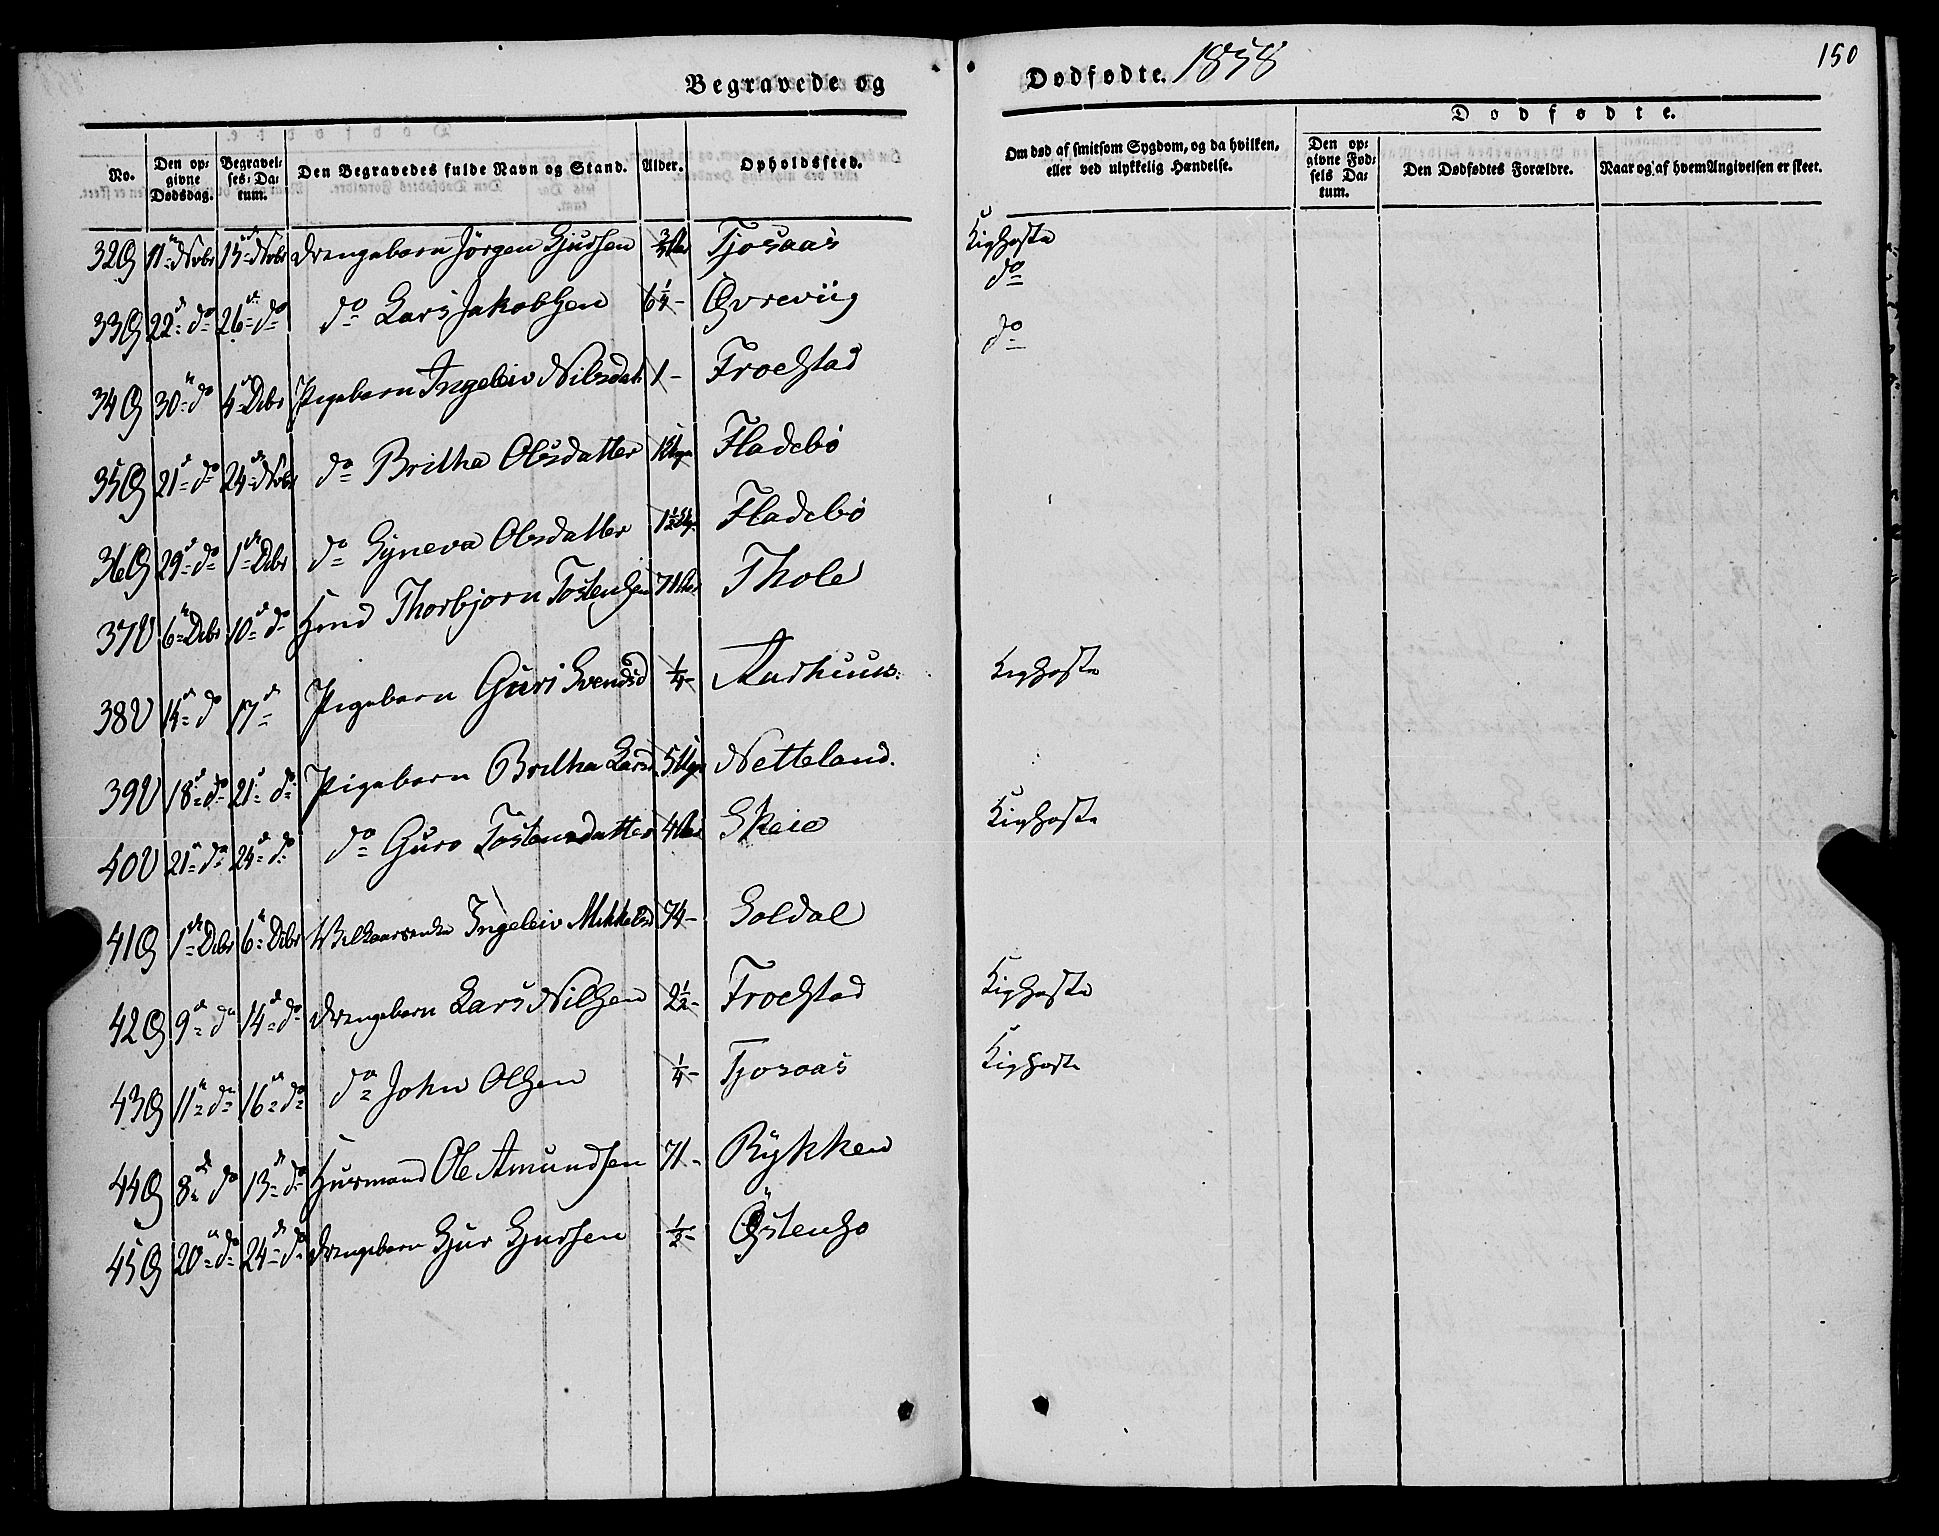 Begravede og
Dødfødte. 1858
150
No.
Den opgivne Dødsdag.
Begravelses-Datum.
Den Begravedes fulde Navn og Stand.
Alder.
Opholdssted.
Om død af smitsom Sygdom, og da hvilken, eller ved ulykkelig Hændelse.
Dødfødte.
Den opgivne Fødsels Datum.
Den Dødfødtes Forældre.
Naar og af hvem Angivelsen er skeet.
32 11te Novbr 15de Novbr Drengebarn Jörgen Gjursen Tjosaas Kighoste
33 22de do 26de do do Lars Jakobsen 6 1/4 - Øvreviig do
34 30te do 4de Dcbr Pigebarn Ingeleiv Nilsdat. 1 - Froestad do
35 21de do 24de Novbr do Britha Olsdatter Fladebö
36 29de do 1ste Dcbr do Syneva Olsdatter Fladebö
37 6te Dcbr 10de do Thorbjorn Tostensen 71 Aar Thole
38 14de do 17de Pigebarn Guri Svendsd 1/4 - Aarhuus. Kighoste
39 18de do 21de do Pigebarn Britha Larsd. 5 Uger Netteland.
40 21de do 24de do do Guro Tostensdatter 4 Aar Skeie Kighoste
41 1ste Dcbr 6te Dcbr Ingeleiv Mikkelsd 74 - Soldal
42 9de do 14de do Drengebarn Lars Nilsen 2 1/2 - Froestad Kighoste
43 11te do 16de do do John Olsen 1/4 - Tjosaas Kighoste
44 8de do 13de do Huusmand Ole Amundsen 71 - Rykken
45 20de do 24de do Drengebarn Gjur Gjursen 1/2 - Östensö